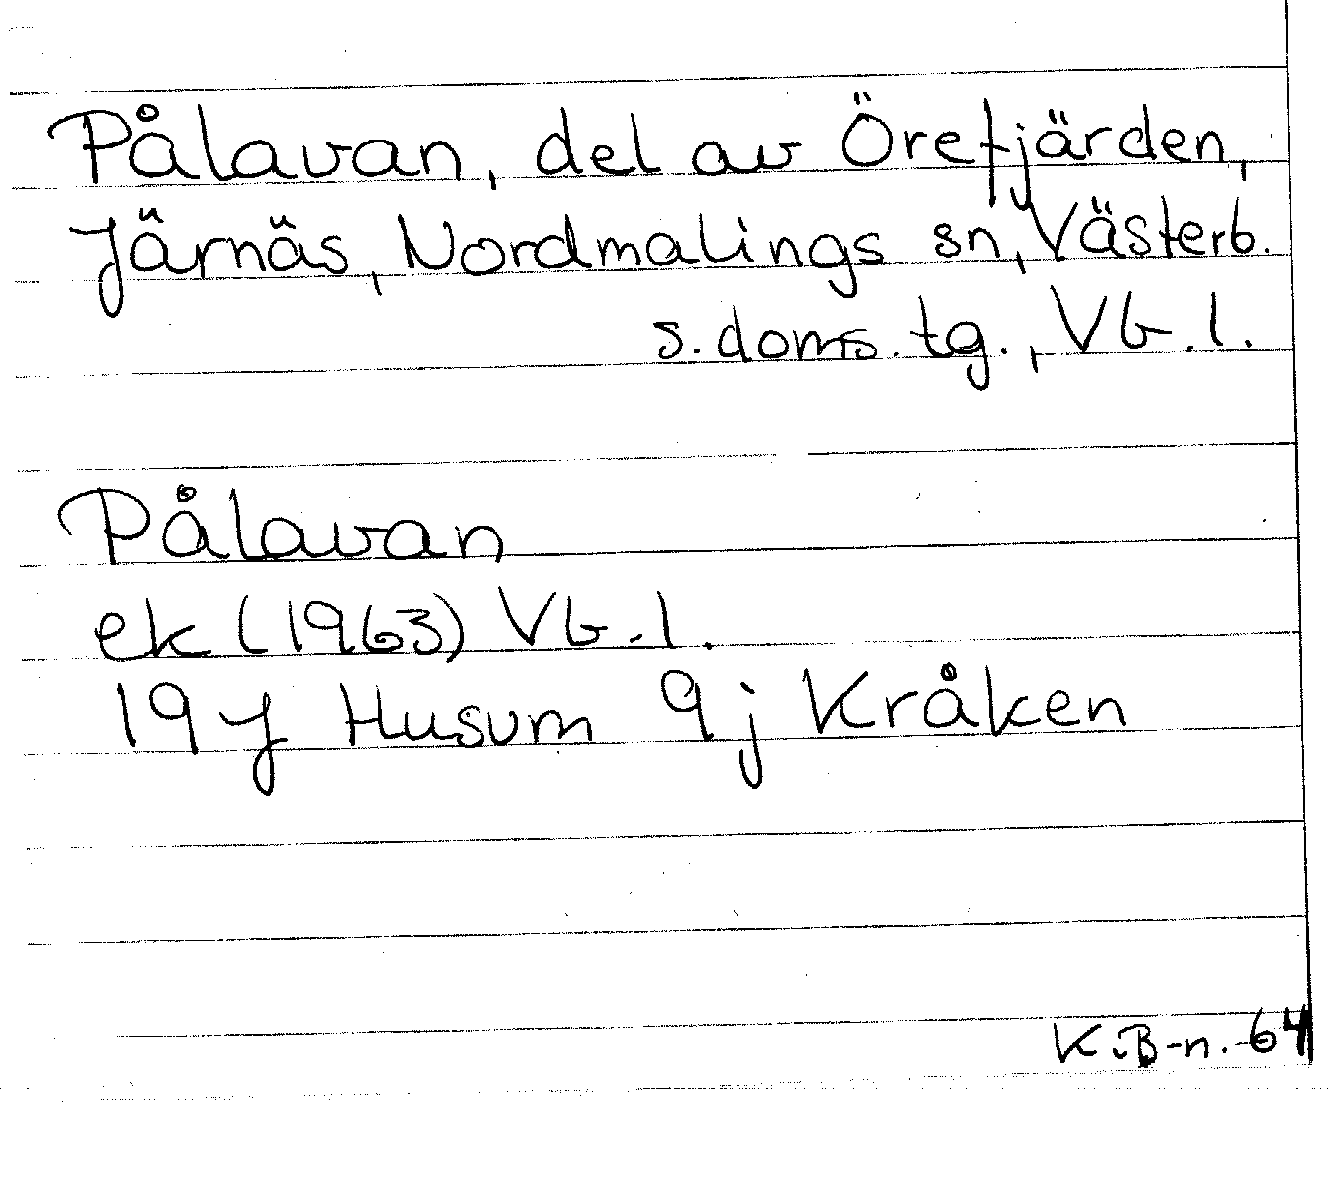 Pålavan, del av Örefjärden,
Järnäs, Nordmalings sn, Västerb.
s. doms. tg., Vb. l.
Pålavan
ek (1963) Vb. l.
19 J Husum 9 j Kråken
K. B-n. -64